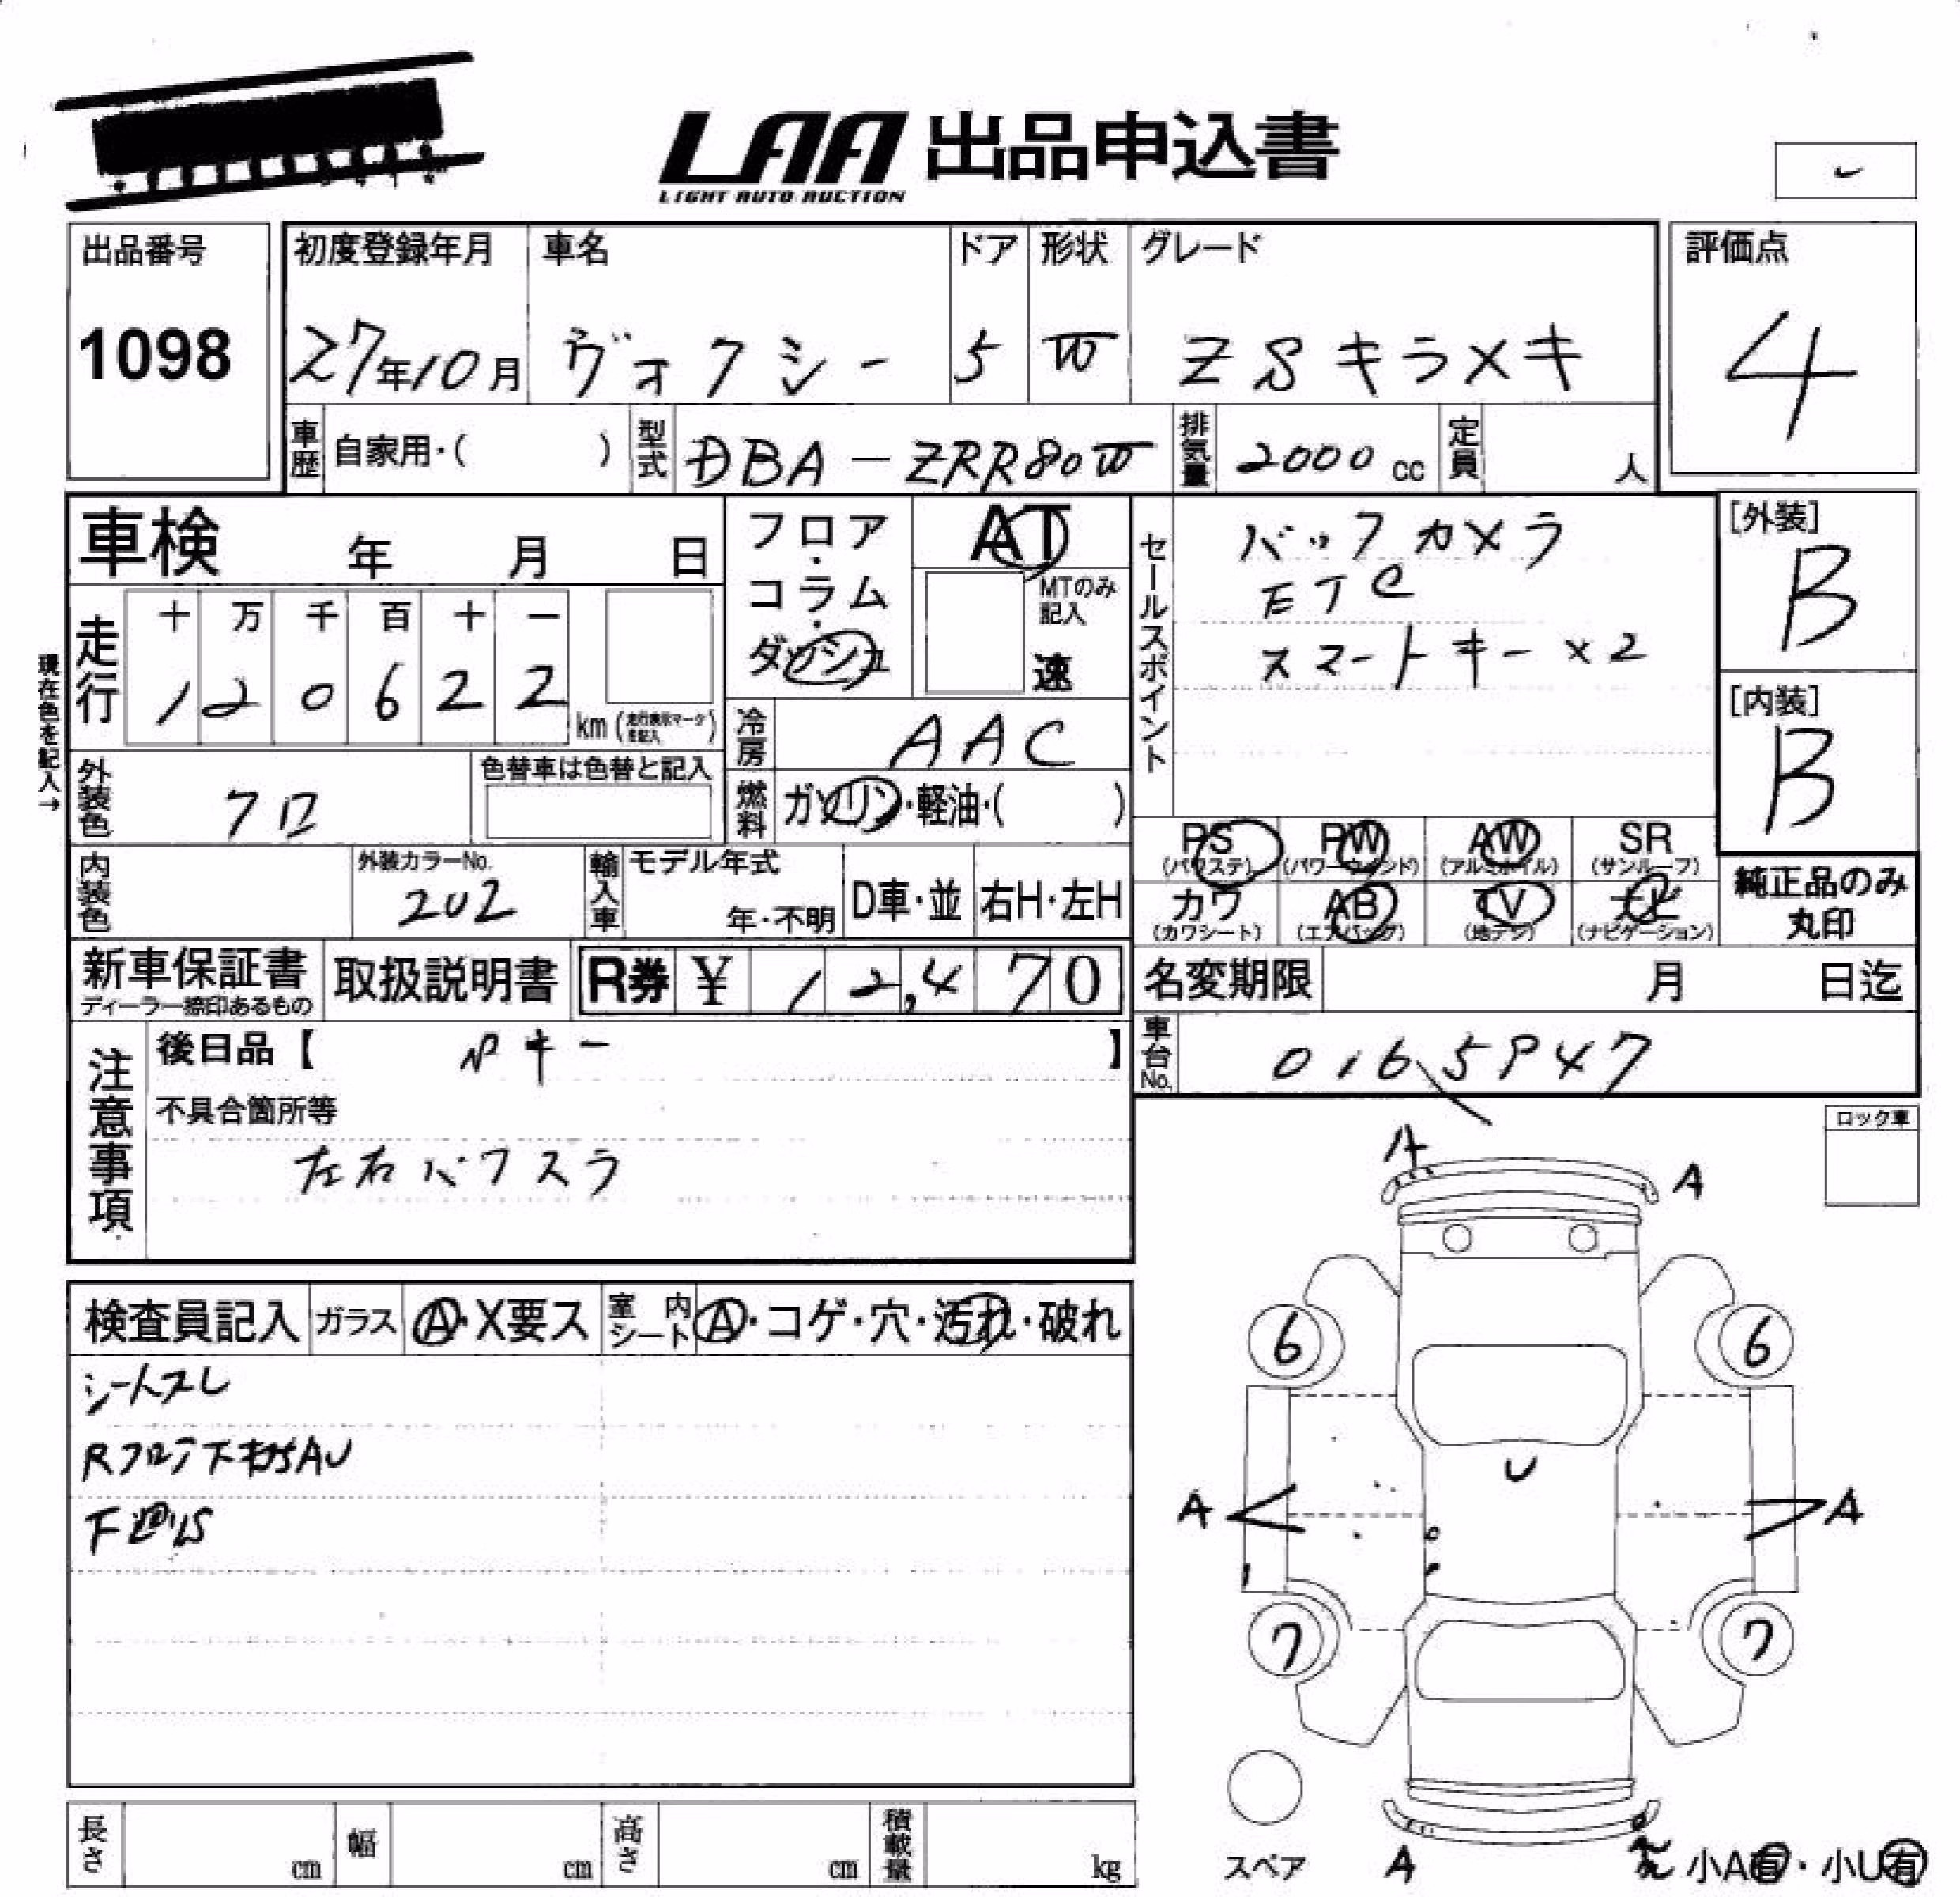 LAA 出品申込書
LIGHT AUTO AUCTION
出品番号
1098
初度登録年月 車名 ドア 形状 グレード
27年10月 ヴォクシー 5 W ZSキラメキ
評価点
4
車歴 自家用・( ) 型式 DBA-ZRR80W 排気量 2000cc 定員 人
車検 年 月 日
フロア・コラム・ダッシュ
AT
MTのみ記入
速
セールスポイント
バックカメラ
ETC
スマートキー×2
[外装]
B
[内装]
B
現在色を記入→
走行
十 万 千 百 十 一
1 2 0 6 2 2
km (走行表示マークを記入)
冷房 AAC
燃料 ガソリン・軽油・( )
外装色 クロ
色替車は色替と記入
内装色
外装カラーNo.
202
輸入車 モデル年式
年・不明 D車・並 右H・左H
PS PW AW SR
(パワステ) (パワーウィンド) (アルミホイル) (サンルーフ)
カワ AB TV ナビ
(カワシート) (エアバッグ) (地デジ) (ナビゲーション)
純正品のみ
丸印
新車保証書 取扱説明書 R券 ¥ 12,470
ディーラー捺印あるもの
名変期限 月 日迄
車台No.
注意事項
後日品【 キー 】
不具合箇所等
左右パワスラ
ロック車
検査員記入 ガラス A・X要ス 室内シート A・コゲ・穴・汚れ・破れ
シートスレ
下回りS
A
A
6 6
U
A A
7 7
スペア
A
小A有・小U有
長さ cm 幅 cm 高さ cm 積載量 kg